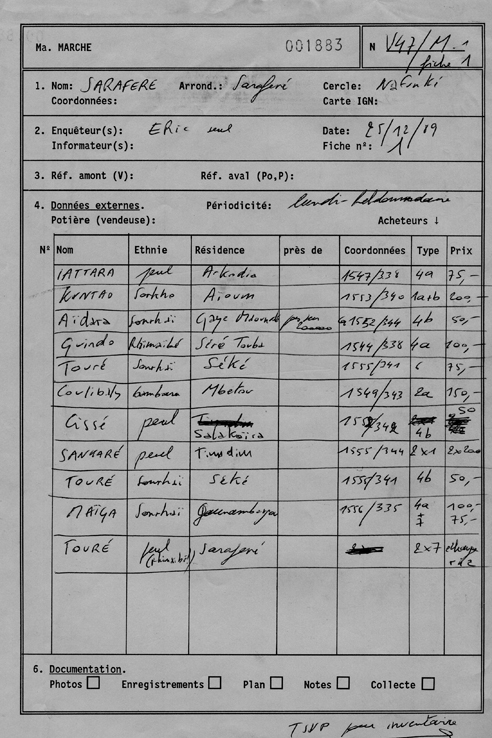 Ma. MARCHE 001883 N V47/M.1
fiche 1
1. Nom: SARAFERE Arrond.: Sarafené Cercle: Niafunké
Coordonnées: Carte IGN:
2. Enquêteur(s): ERic seul Date: 25/12/89
Informateur(s): Fiche nº: 1
3. Réf. amont (V): Réf. aval (Po,P):
4. Données externes. Périodicité: lundi- hebdomadaire
Potière (vendeuse): Acheteurs ↓
Nº Nom Ethnie Résidence près de Coordonnées Type Prix
TATTARA peul Arkodia 1547/338 4a 75,-
KUNTAO Aïoum 1553/340 1a+b 200,-
Aïdara Sonrhaï Gaye 1552/344 4b 50,-
Guindo Rhimaïbé Séré Touba 1544/338 4a 100,-
Touré Sonrhaï Séké 1555/341 c 75,-
Coulibaly bambara Mbetou 1549/343 2a 150,-
Cissé peul Salakoïra 4b 50
SANKARÉ peul Timdim 1555/344 2x1 2x200
TOURÉ Sonrhaï Séké 1555/341 4b 50,-
MAÏGA Sonrhaï 1556/335 4a 100,-
75,-
TOURÉ peul Sarafené 2x7
6. Documentation.
Photos Enregistrements Plan Notes Collecte
TSVP pour inventaire